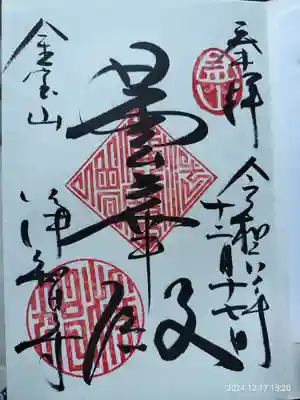 奉拝
令和六年
十二月十七日
曇華殿
金宝山
浄智寺
2024.12.17 15:20